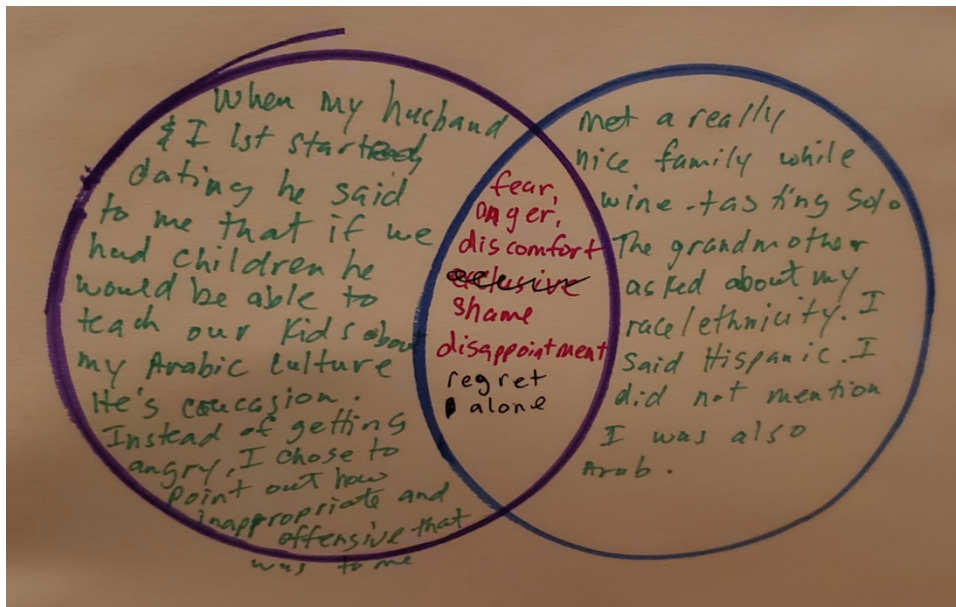 When my husband
& I 1st started
dating he said
to me that if we
had children he
would be able to
teach our kids about
my Arabic culture
He's coucasion.
Instead of getting
angry, I chose to
point out how
inappropriate and
offensive that
was to me
fear,
anger,
discomfort
exclusive
shame
disappointment
regret
alone
met a really
nice family while
wine-tasting solo
The grandmother
asked about my
race/ethnicity. I
said Hispanic. I
did not mention
I was also
Arab.